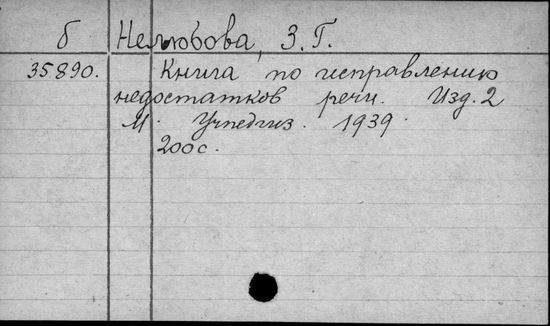 б Нелюбова, З. Г.
35890. Книга по исправлению
недостатков речи. Изд. 2
М. Учпедгиз. 1939.
200 с.